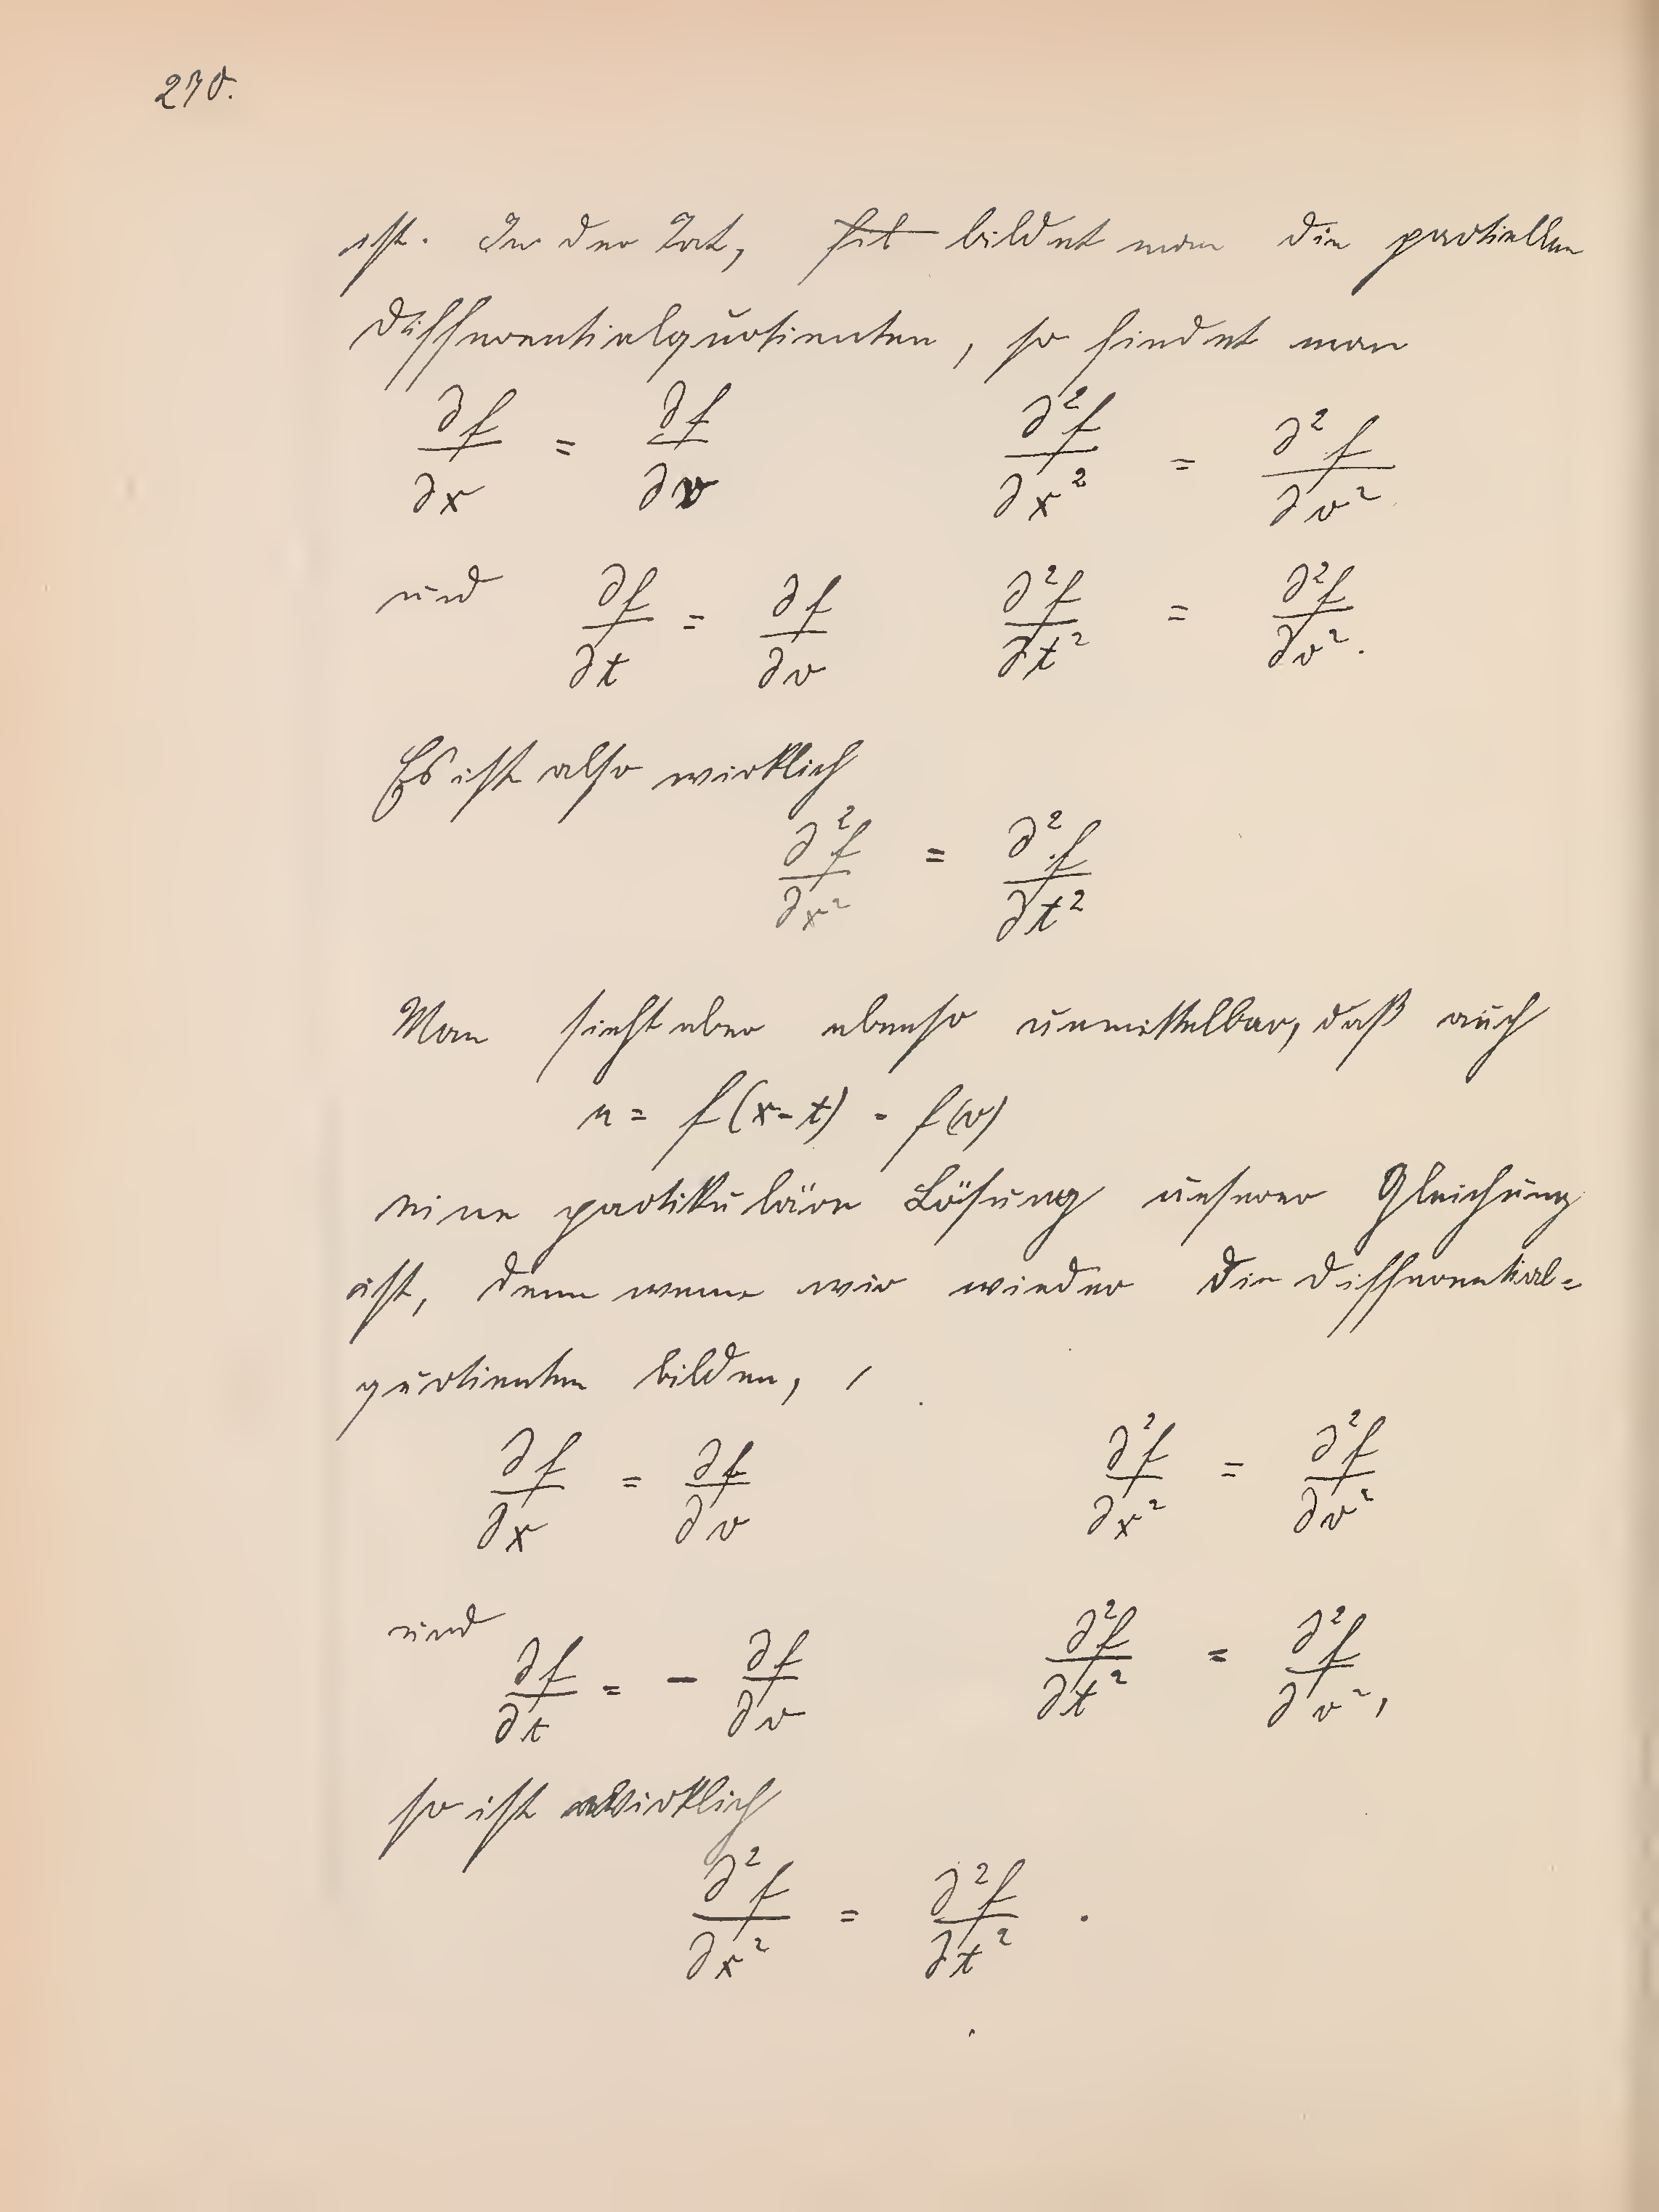 270.
ist. In der Tat, ~~fit~~ bildet man die partiellen
Differentialquotienten, so findet man
∂f/∂x = ∂f/∂v  ∂²f/∂x² = ∂²f/∂v²
und ∂f/∂t = ∂f/∂v  ∂²f/∂t² = ∂²f/∂v².
Es ist also wirklich
∂²f/∂x² = ∂²f/∂t²
Man sieht aber ebenso unmittelbar, daß auch
u = f(x-t) = f(v)
eine partikuläre Lösung unserer Gleichung
ist, denn wenn wir wieder die Differential=
quotienten bilden,
∂f/∂x = ∂f/∂v  ∂²f/∂x² = ∂²f/∂v²
und ∂f/∂t = - ∂f/∂v  ∂²f/∂t² = ∂²f/∂v²,
so ist wirklich
∂²f/∂x² = ∂²f/∂t² .